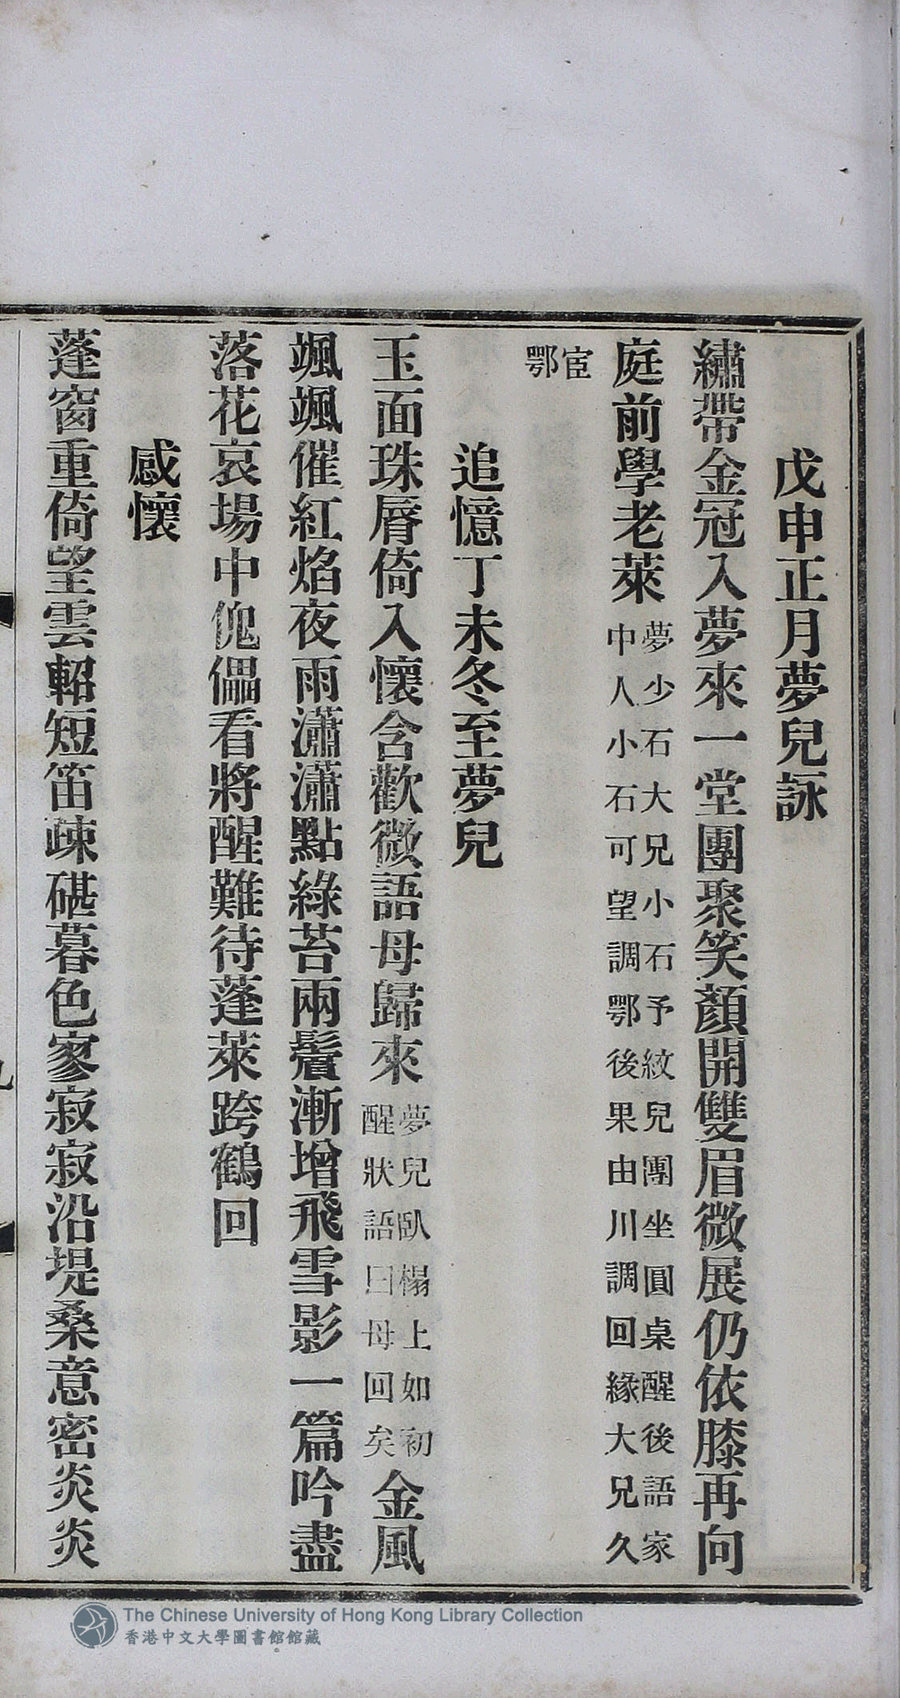 戊申正月夢兒詠
繡帶金冠入夢來一堂團聚笑顏開雙眉微展仍依膝再向
庭前學老萊夢少石大兄小石予紋兒團坐圓桌醒後語家
中人小石可望調鄂後果由川調回緣大兄久
宦
鄂
追憶丁未冬至夢兒
玉面珠脣倚入懷含歡微語母歸來夢兒臥榻上如初
醒狀語曰母回矣金風
颯颯催紅焰夜雨瀟瀟點綠苔兩鬢漸增飛雪影一篇吟盡
落花哀場中傀儡看將醒難待蓬萊跨鶴回
感懷
蓬窗重倚望雲軺短笛疎碪暮色寥寂寂沿堤桑意密炎炎
九
The Chinese University of Hong Kong Library Collection
香港中文大學圖書館館藏